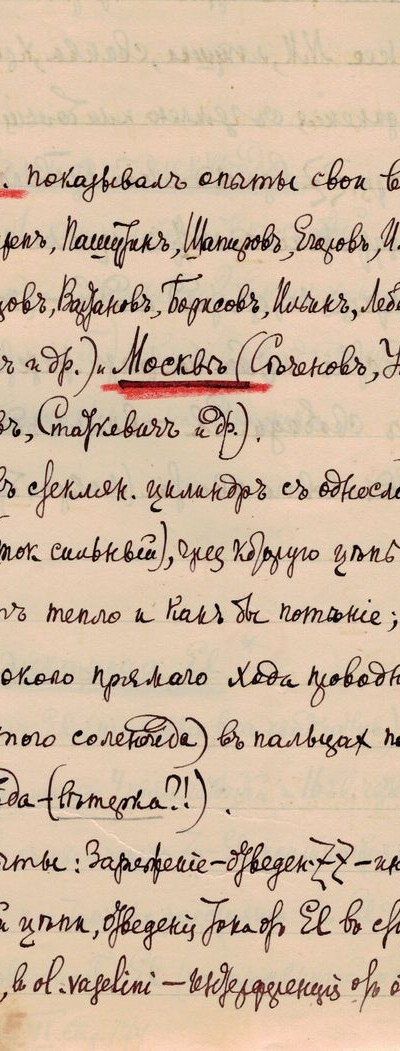 . показывалъ опыты свои в
ренъ, Пашутинъ, Шапировъ, Егоровъ, И.
цовъ, Варановъ, Борисовъ, Ильинъ, Леб
ъ и др.) и Москвы (Сѣченовъ, У
въ, Статкевичъ и др.).
въ стеклян. цилиндръ съ односло
ток сильный), чрез которую цѣпь
тъ тепло и какъ бы потѣніе;
около прямаго хода проводн
того соленоида) въ пальцах по
да – (вѣтерка?!).
ыты: Заряженіе – отведен. – ин
й цѣпи, отведенiя тока отъ El въ ст
, в ol. vaselini – интерференцiя отъ о